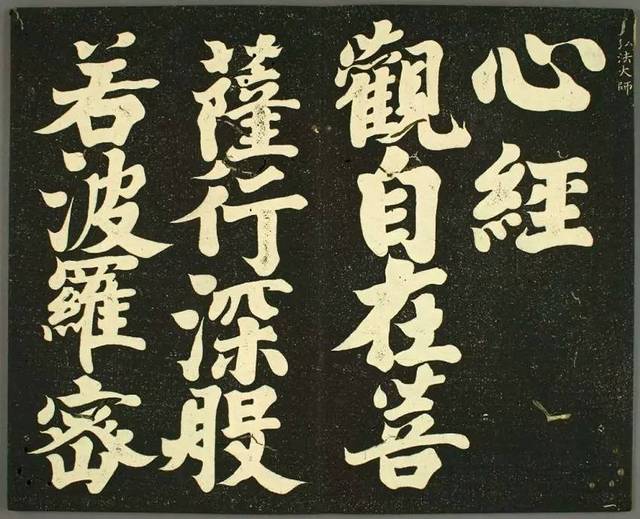 心經
觀自在菩
薩行深股
若波羅密
弘法大師
一